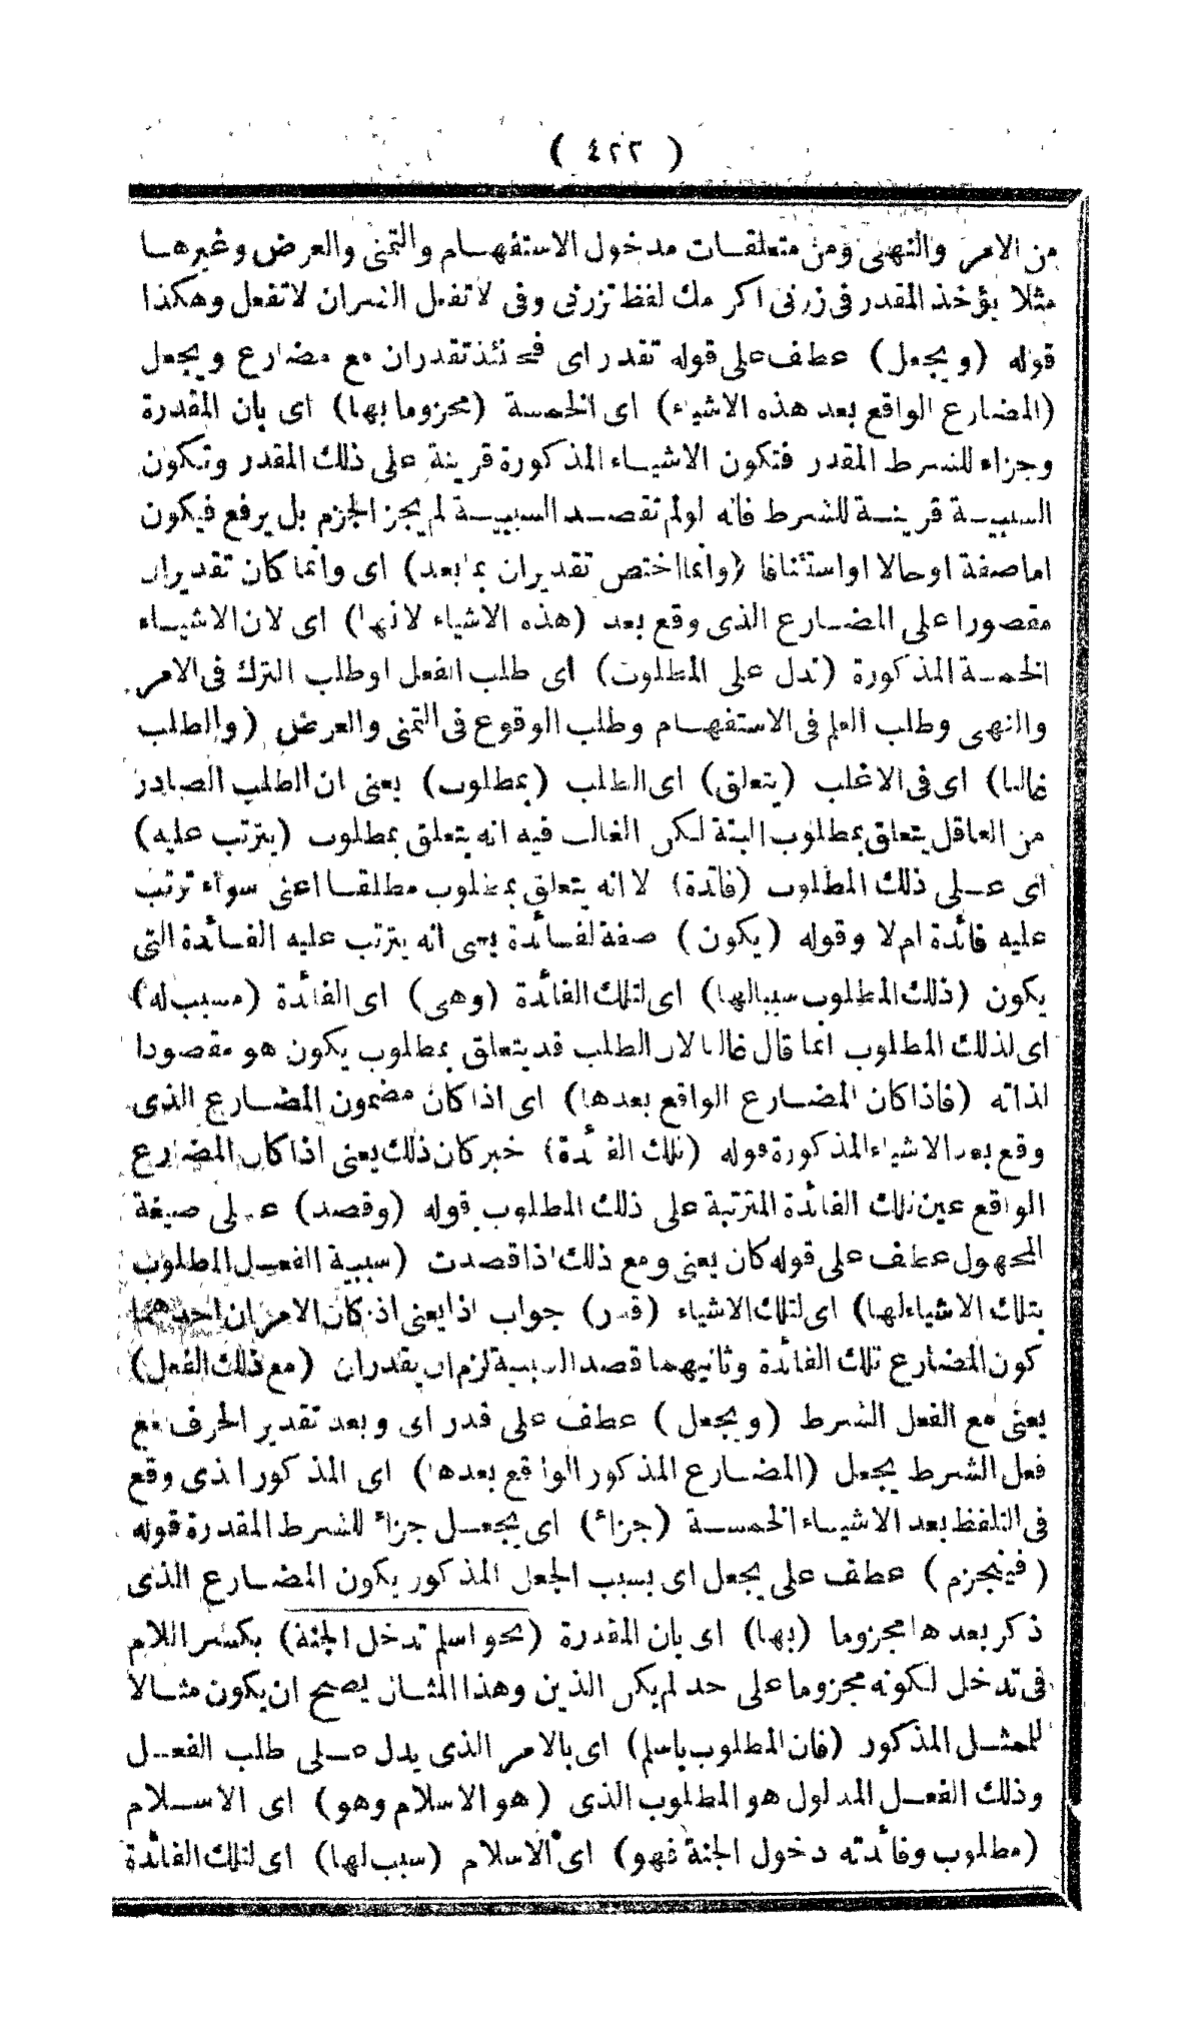 ( ٤٢٢ )
من الامر والنهى ومن متعلقات مدخول الاستفهام والتمنى والعرض وغيرها
مثلا يؤخذ المقدر فى زرنى اكرمك لفظ تزرنى وفى لا تفعل الشر ان لا تفعل وهكذا
قوله (ويجعل) عطف على قوله تقدر اى فحينئذ تقدر ان مع مضارع ويجعل
(المضارع الواقع بعد هذه الاشياء) اى الخمسة (مجزوما بها) اى بان المقدرة
وجزاء للشرط المقدر فتكون الاشياء المذكورة قرينة على ذلك المقدر وتكون
السببية قرينة للشرط فانه لو لم تقصد السببية لم يجز الجزم بل يرفع فيكون
اما صفة او حالا او استئنافا (وانما اختص تقدير ان بما بعد) اى وانما كان تقدير ان
مقصورا على المضارع الذى وقع بعد (هذه الاشياء لانها) اى لان الاشياء
الخمسة المذكورة (تدل على المطلوب) اى طلب الفعل او طلب الترك فى الامر
والنهى وطلب العلم فى الاستفهام وطلب الوقوع فى التمنى والعرض (والطلب
غالبا) اى فى الاغلب (يتعلق) اى الطلب (بمطلوب) يعنى ان الطلب الصادر
من العاقل يتعلق بمطلوب البتة لكن الغالب فيه انه يتعلق بمطلوب (يترتب عليه)
اى على ذلك المطلوب (فائدة) لا انه يتعلق بمطلوب مطلقا اعنى سواء ترتب
عليه فائدة ام لا وقوله (يكون) صفة لفائدة يعنى انه يترتب عليه الفائدة التى
يكون (ذلك المطلوب سببا لها) اى لتلك الفائدة (وهى) اى الفائدة (مسبب له)
اى لذلك المطلوب انما قال غالبا لان الطلب قد يتعلق بمطلوب يكون هو مقصودا
لذاته (فاذا كان المضارع الواقع بعدها) اى اذا كان مضمون المضارع الذى
وقع بعد الاشياء المذكورة قوله (تلك الفائدة) خبر كان ذلك يعنى اذا كان المضارع
الواقع عين تلك الفائدة المترتبة على ذلك المطلوب قوله (وقصد) على صيغة
المجهول عطف على قوله كان يعنى ومع ذلك اذا قصدت (سببية الفعل المطلوب
بتلك الاشياء لها) اى لتلك الاشياء (قدر) جواب اذا يعنى اذ كان الامران احدهما
كون المضارع تلك الفائدة وثانيهما قصد السببية لزم ان يقدر ان (مع ذلك الفعل)
يعنى مع الفعل الشرط (ويجعل) عطف على قدر اى وبعد تقدير الحرف مع
فعل الشرط يجعل (المضارع المذكور الواقع بعدها) اى المذكور الذى وقع
فى التلفظ بعد الاشياء الخمسة (جزاء) اى يجعل جزاء للشرط المقدرة قوله
(فينجزم) عطف على يجعل اى بسبب الجعل المذكور يكون المضارع الذى
ذكر بعدها مجزوما (بها) اى بان المقدرة (نحو اسلم تدخل الجنة) بكسر اللام
فى تدخل لكونه مجزوما على حد لم يكن الذين وهذا المثال يصح ان يكون مثالا
للمثل المذكور (فان المطلوب باسلم) اى بالامر الذى يدل على طلب الفعل
وذلك الفعل المدلول هو المطلوب الذى (هو الاسلام وهو) اى الاسلام
(مطلوب وفائدته دخول الجنة فهو) اى الاسلام (سبب لها) اى لتلك الفائدة